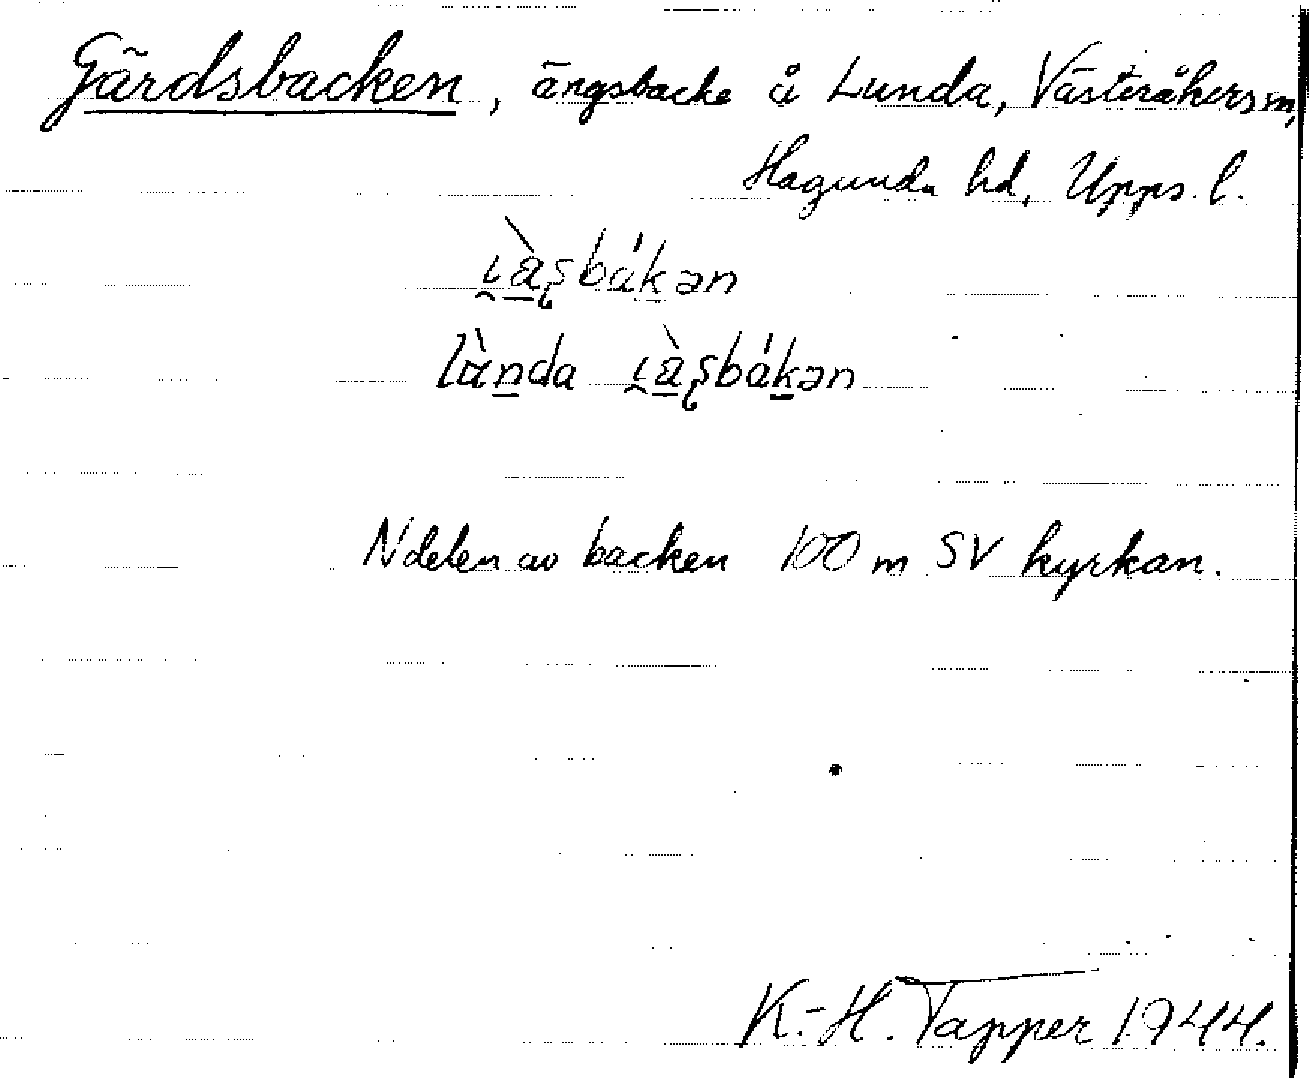 Gärdsbacken, ängsbacke å Lunda, Västeråkers sn,
Hagunda hd, Upps. l.
bákən
bákən
N delen av backen 100 m SV kyrkan.
K.-H. Tapper 1944.